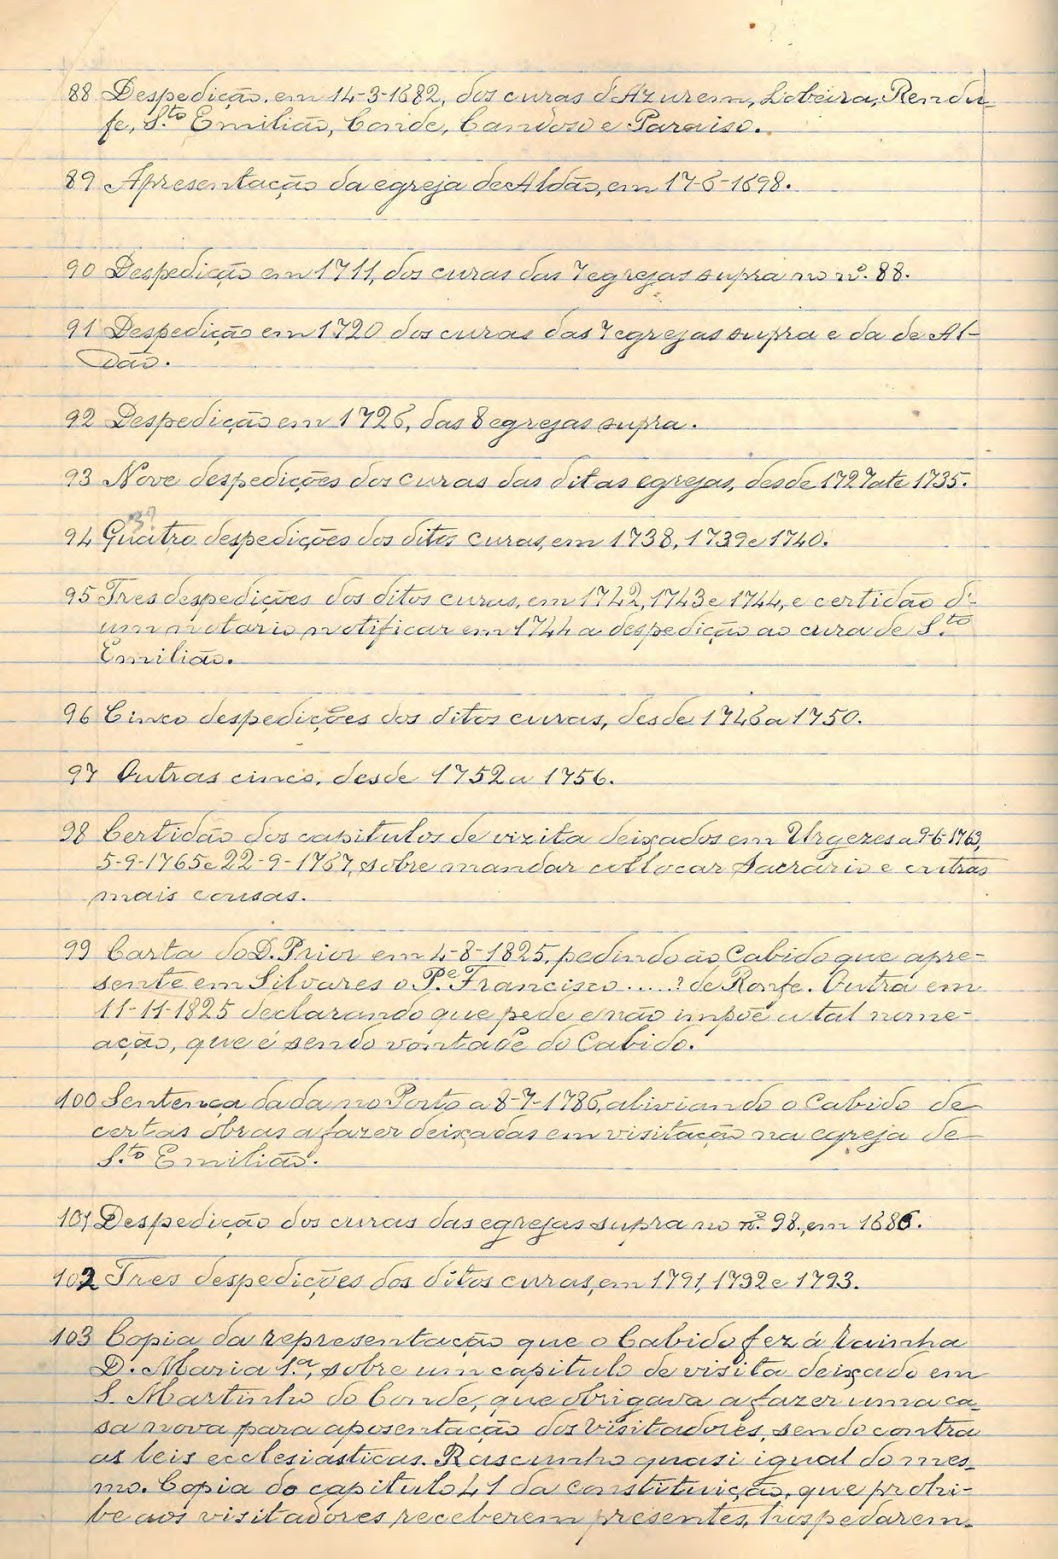 88 Despedição em 14-3-1682, dos curas d'Azurem, Lobeira, Rendu-
fe, S.to Emilião, Conde, Candoso e Paraiso.
89 Apresentação da egreja de Aldão, em 17-6-1698.
90 Despedição em 1711, dos curas das 7 egrejas supra no nº. 88.
91 Despedição em 1720 dos curas das 7 egrejas supra e da de Al-
dão.
92 Despedição em 1726, das 8 egrejas supra.
93 Nove despedições dos curas das ditas egrejas, desde 1727 até 1735.
3?
94 Quatro despedições dos ditos curas, em 1738, 1739 e 1740.
95 Tres despedições dos ditos curas, em 1742, 1743 e 1744, e certidão d'
um notario notificar em 1744 a despedição ao cura de S.to
Emilião.
96 Cinco despedições dos ditos curas, desde 1746 a 1750.
97 Outras cinco, desde 1752 a 1756.
98 Certidão dos capitulos de vizita deixados em Urgezes a 9-6-1763,
5-9-1765 e 22-9-1767, sobre mandar collocar Sacrário e outras
mais cousas.
99 Carta do D. Prior em 4-8-1825, pedindo ao Cabido que apre-
sente em Silvares o P.e Francisco .....? de Ronfe. Outra em
11-11-1825 declarando que pede e não impõe a tal nome-
ação, que é sendo vontade do Cabido.
100 Sentença dada no Porto a 8-7-1786, aliviando o Cabido de
certas obras a fazer deixadas em visitação na egreja de
S.to Emilião.
101 Despedição dos curas das egrejas supra no nº. 98, em 1686.
102 Tres despedições dos ditos curas, em 1791, 1792 e 1793.
103 Copia da representação que o Cabido fez á rainha
D. Maria 1.a, sobre um capitulo de visita deixado em
S. Martinho do Conde, que obrigava a fazer uma ca-
sa nova para aposentação dos visitadores, sendo contra
as leis ecclesiasticas. Rascunho quasi igual do mes-
mo. Copia do capitulo 41 da constituição, que prohi-
be aos visitadores receberem presentes, hospedarem-